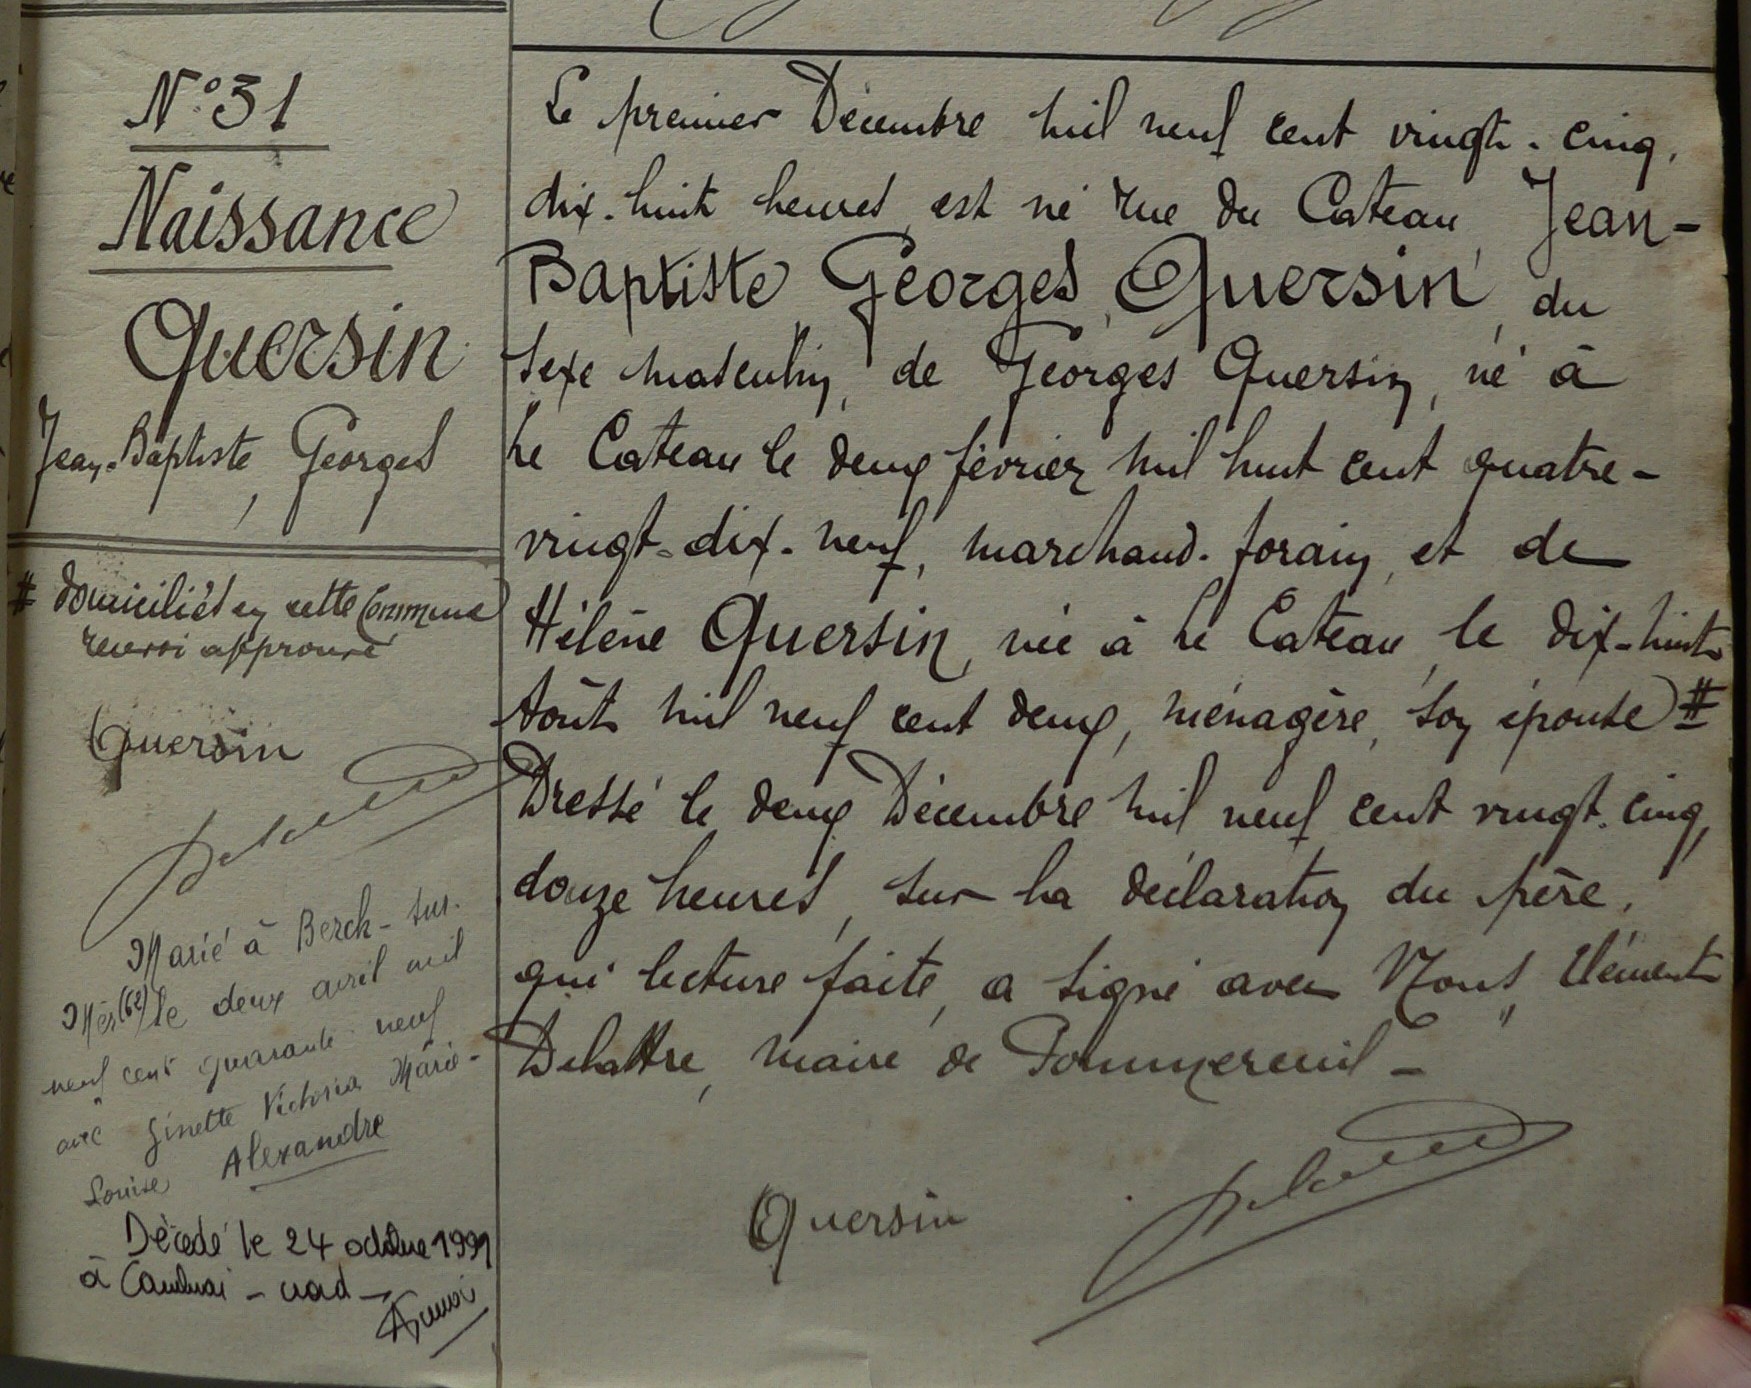 N° 31
Naissance
Quersin
Jean-Baptiste, Georges
# domiciliés en cette Commune
renvoi approuvé
Quersin
Marié à Berck-sur-
Mer (62) le deux avril mil
neuf cent quarante-neuf
avec Ginette Victoria Marie-
Louise Alexandre
Décédé le 24 octobre 1991
à Cambrai - nord -
Le premier Décembre mil neuf cent vingt-cinq,
dix-huit heures, est né rue du Cateau, Jean-
Baptiste, Georges, Quersin, du
sexe masculin, de Georges Quersin, né à
Le Cateau le deux février mil huit cent quatre-
vingt-dix-neuf, marchand-forain, et de
Hélène Quersin, née à Le Cateau, le dix-huit
Août mil neuf cent deux, ménagère, son épouse #
Dressé le deux Décembre mil neuf cent vingt-cinq,
douze heures, sur la déclaration du père,
qui lecture faite, a signé avec Nous, Clément
Delattre, maire de Pommereuil -
Quersin